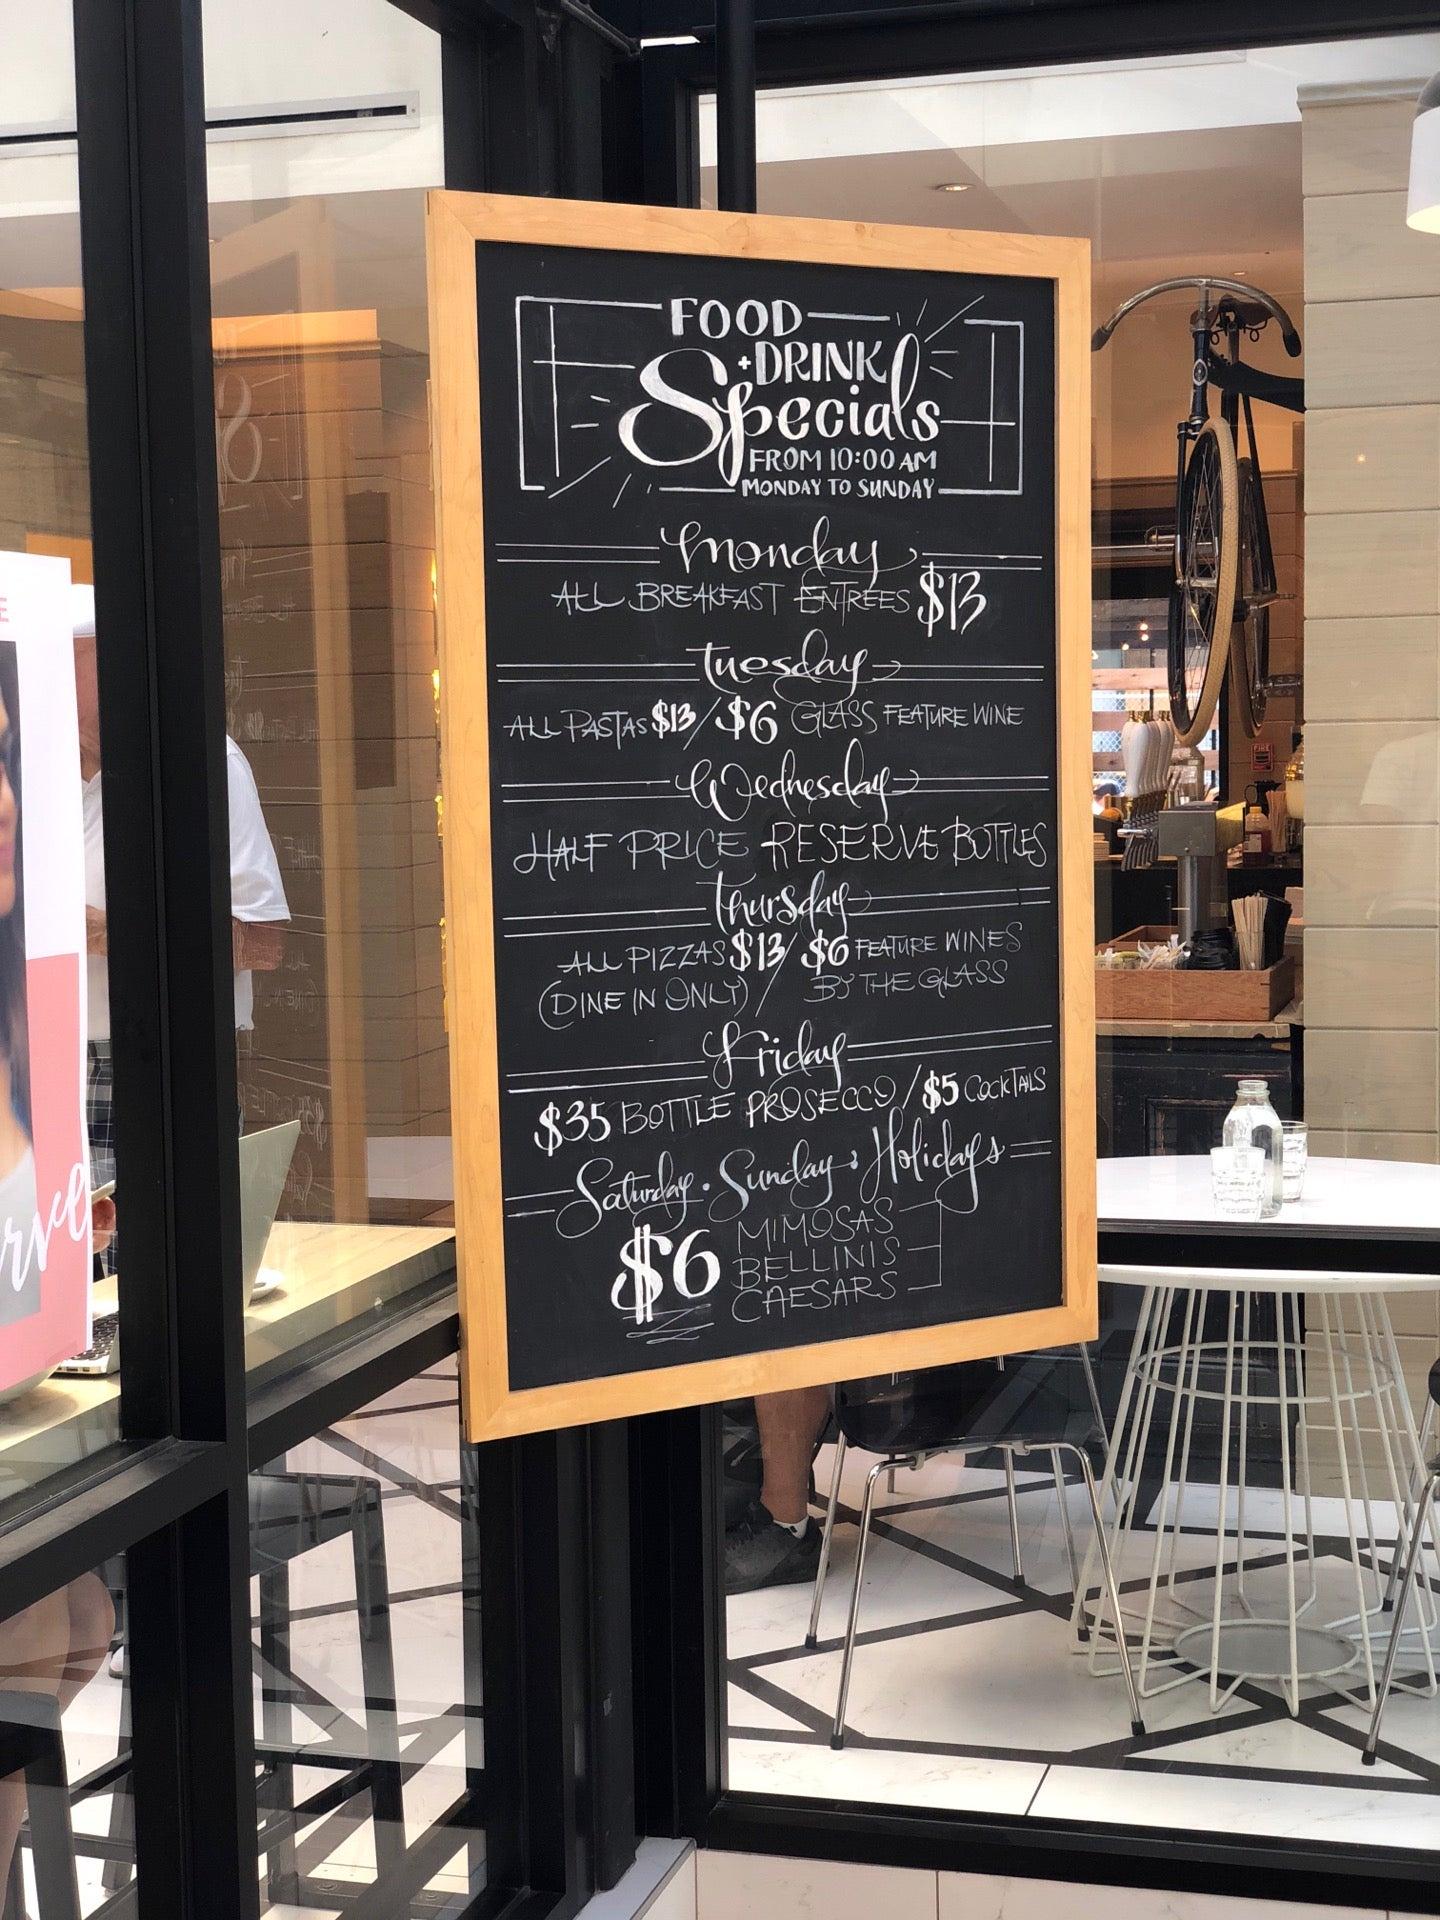 FOOD
+DRINK
Specials
FROM 10:00 AM
MONDAY TO SUNDAY
Monday
ALL BREAKFAST ENTREES $13
Tuesday
ALL PASTAS $13 / $6 GLASS FEATURE WINE
Wednesday
HALF PRICE RESERVE BOTTLES
Thursday
ALL PIZZAS $13 / $6 FEATURE WINES
(DINE IN ONLY) / BY THE GLASS
Friday
$35 BOTTLE PROSECCO / $5 COCKTAILS
Saturday · Sunday : Holidays
$6 MIMOSAS
BELLINIS
CAESARS
FIRE